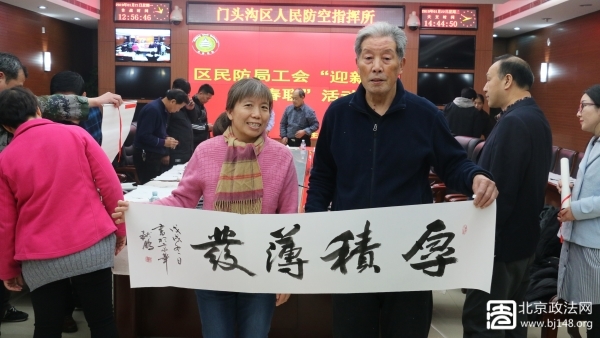 门头沟区人民防空指挥所
12:56:46
14:44:50
区民防局工会“迎新
春联”活动
厚積薄發
戊戌冬日
北京政法网
www.bj148.org